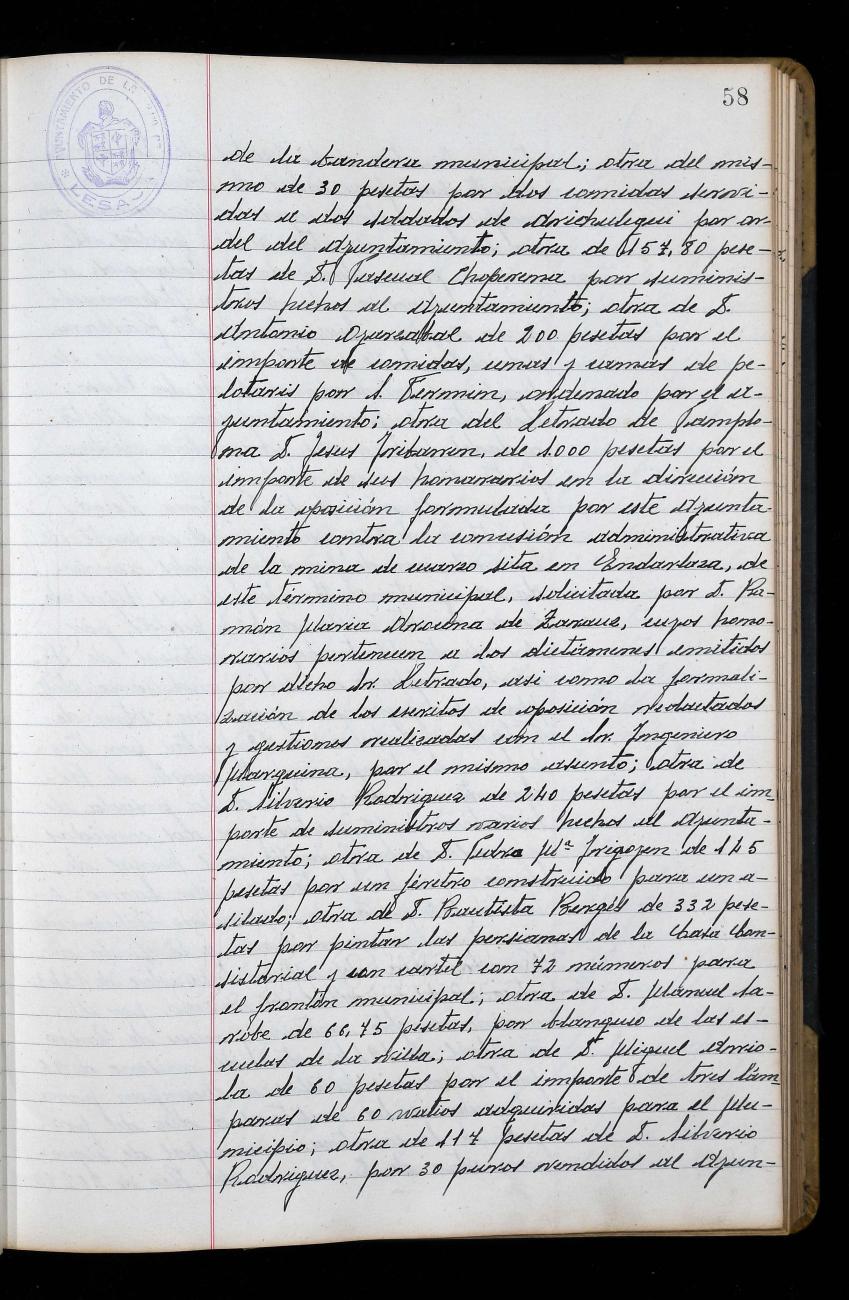 58
AYUNTAMIENTO DE LA VILLA DE
LESACA
de la bandera municipal; otra del mis-
mo de 30 pesetas por dos comidas servi-
das a dos soldados de Arichulegui por or-
del del Ayuntamiento; otra de 157,80 pese-
tas de D. Pascual Choperena por suminis-
tros hechos al Ayuntamiento; otra de D.
Antonio de 200 pesetas por el
importe de comidas, cenas y camas de pe-
lotaris por S. Fermin, ordenado por el A-
yuntamiento; otra del Letrado de Pamplo-
na D. Jesus Iribarren, de 1.000 pesetas por el
importe de sus honorarios en la dirección
de la oposición formulada por este Ayunta-
miento contra la concesión administrativa
de la mina de cuarzo sita en Endarlaza, de
este término municipal, solicitada por D. Ra-
món Maria Arocena de Zarauz, cuyos hono-
rarios pertenecen a los dictámenes emitidos
por dicho Sr. Letrado, asi como la formali-
zación de los escritos de oposición redactados
y gestiones realizadas con el Sr. Ingeniero
Marquina, por el mismo asunto; otra de
D. Silverio Rodriguez de 240 pesetas por el im-
porte de suministros varios hechos al Ayunta-
miento; otra de D. Pedro Mª Irigoyen de 145
pesetas por un féretro construido para un a-
silado; otra de D. Bautista Bergés de 332 pese-
tas por pintar las persianas de la Casa Con-
sistorial y con cartel con 72 números para
el frontón municipal; otra de D. Manuel Sa-
robe de 66,75 pesetas, por blanqueo de las es-
cuelas de la villa; otra de D. Miguel Arrio-
la de 60 pesetas por el importe de tres lám-
paras de 60 watios adquiridas para el Mu-
nicipio; otra de 117 pesetas de D. Silverio
Rodriguez, por 30 puros vendidos al Ayun-